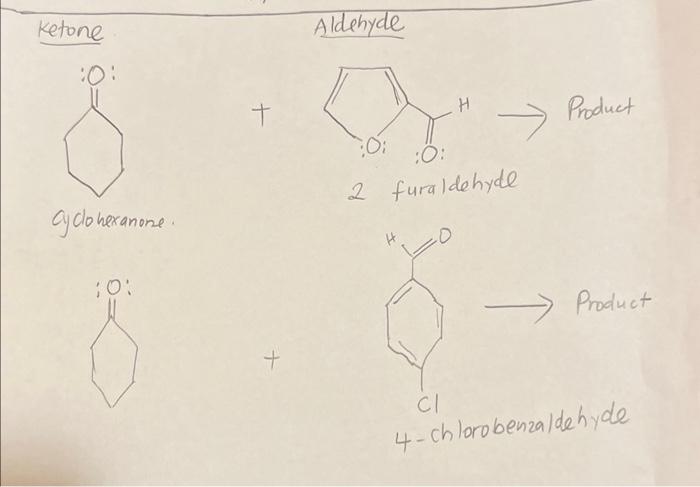 Ketone
Aldehyde
:O:
+
H
→ Product
:O:
:O:
2 furaldehyde
Cyclohexanone.
H
O
:O:
+
→ Product
Cl
4-chlorobenzaldehyde